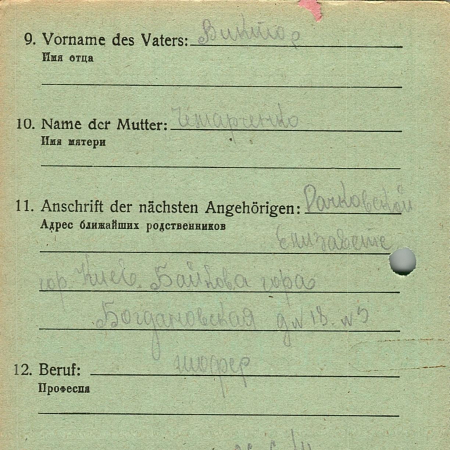 9. Vorname des Vaters: Виктор
Имя отца
10. Name der Mutter:
Имя матери
11. Anschrift der nächsten Angehörigen: Рачковской
Адрес ближайших родственников
Елизавете
гор. Киев. Байкова гора
Богдановская д № 18.
12. Beruf: шофер
Професия